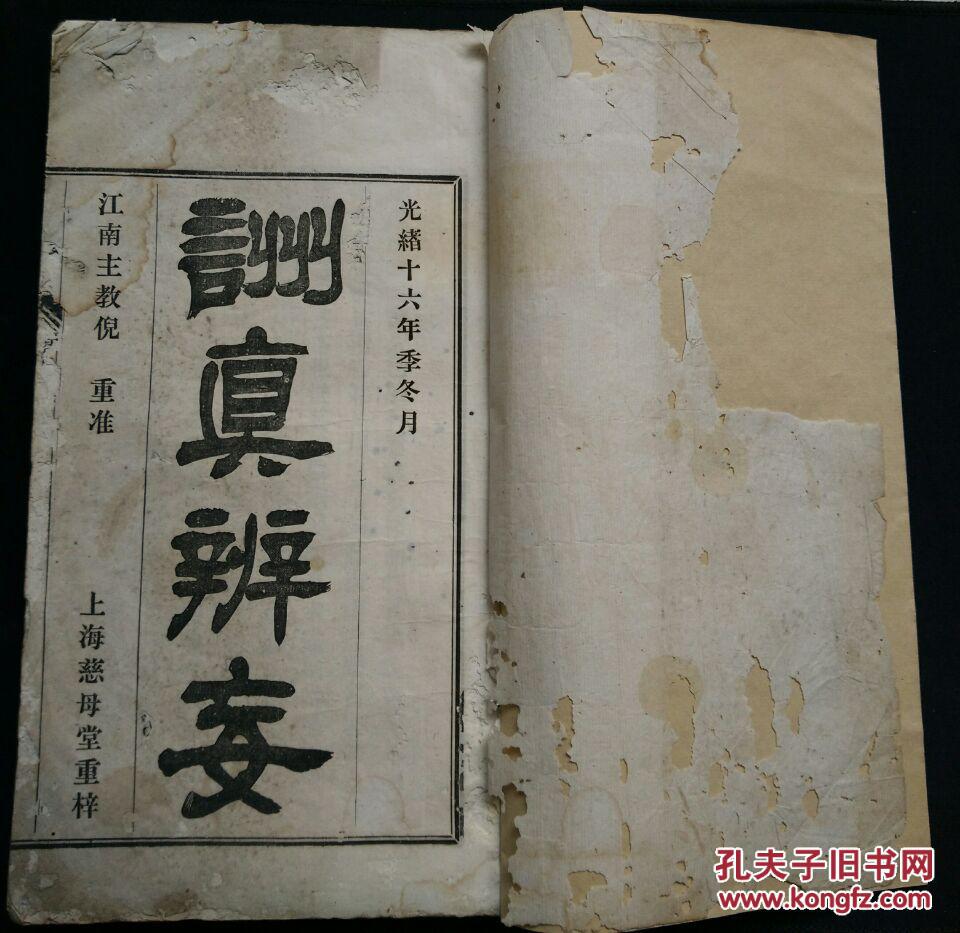 光緒十六年季冬月
詶真辨妄
江南主教倪 重准
上海慈母堂重梓
孔夫子旧书网
www.kongfz.com